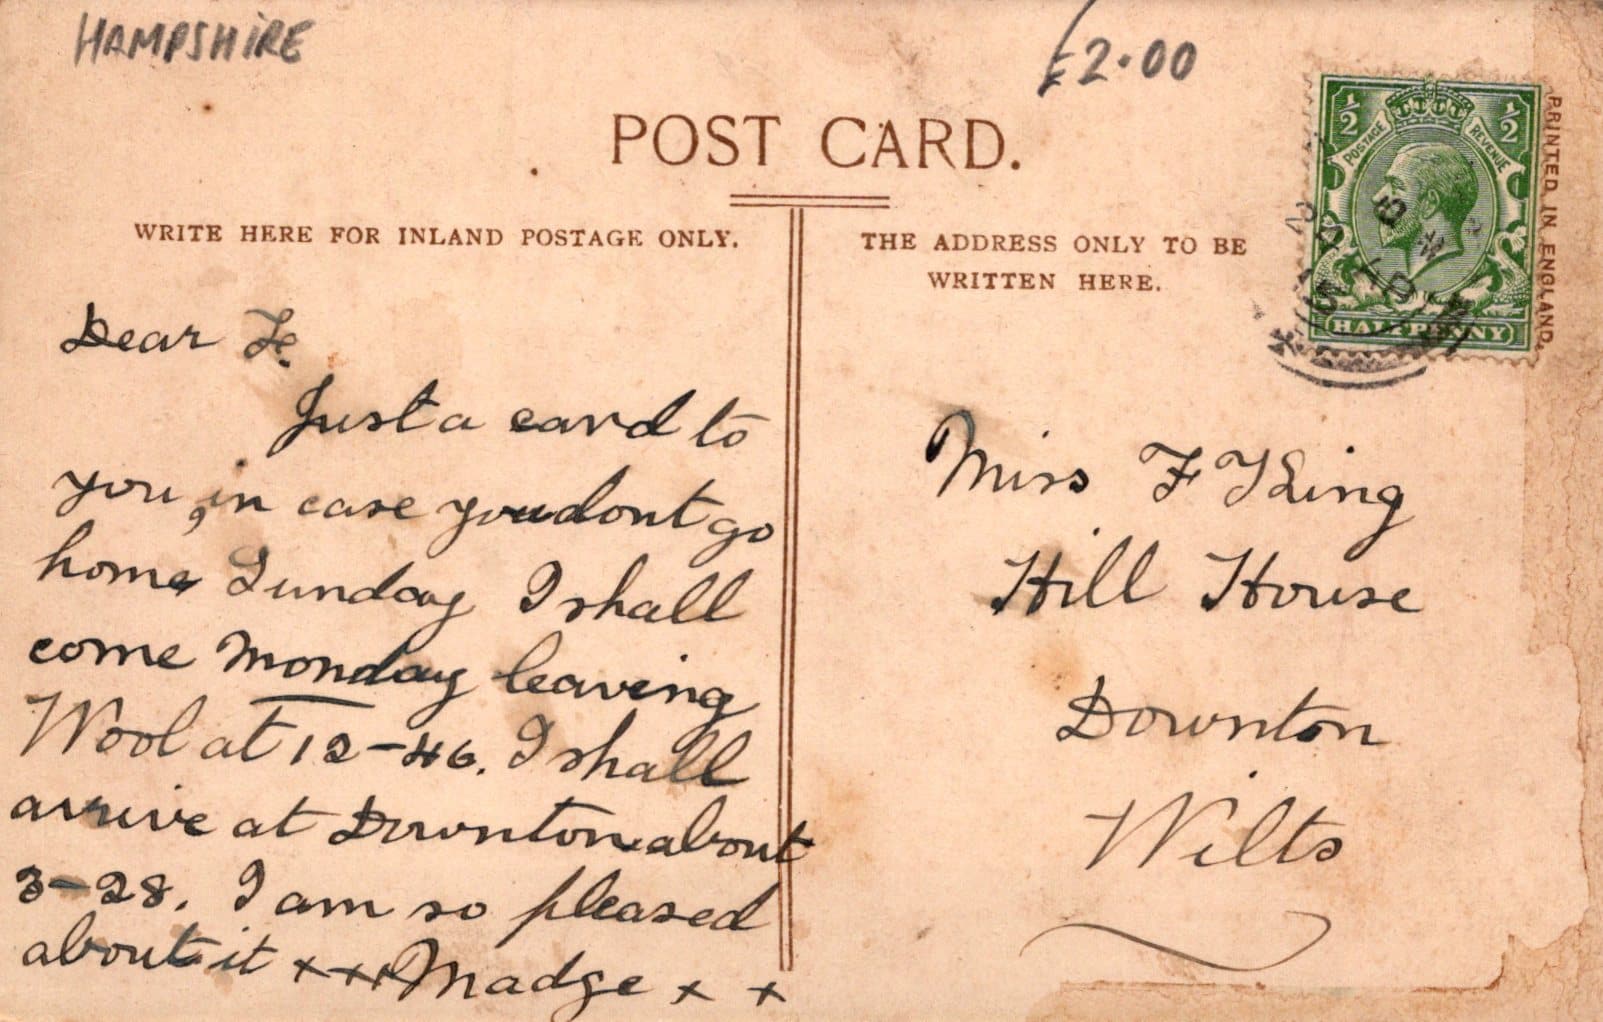 HAMPSHIRE
£2.00
POST CARD.
WRITE HERE FOR INLAND POSTAGE ONLY.
THE ADDRESS ONLY TO BE
WRITTEN HERE.
½ ½
POSTAGE REVENUE
HALFPENNY
PRINTED IN ENGLAND.
Dear F.
Just a card to
you, in case you dont go
home Sunday I shall
come Monday leaving
Wool at 12-46. I shall
arrive at Downton about
3-28. I am so pleased
about it xxx Madge x x
Miss F King
Hill House
Downton
Wilts